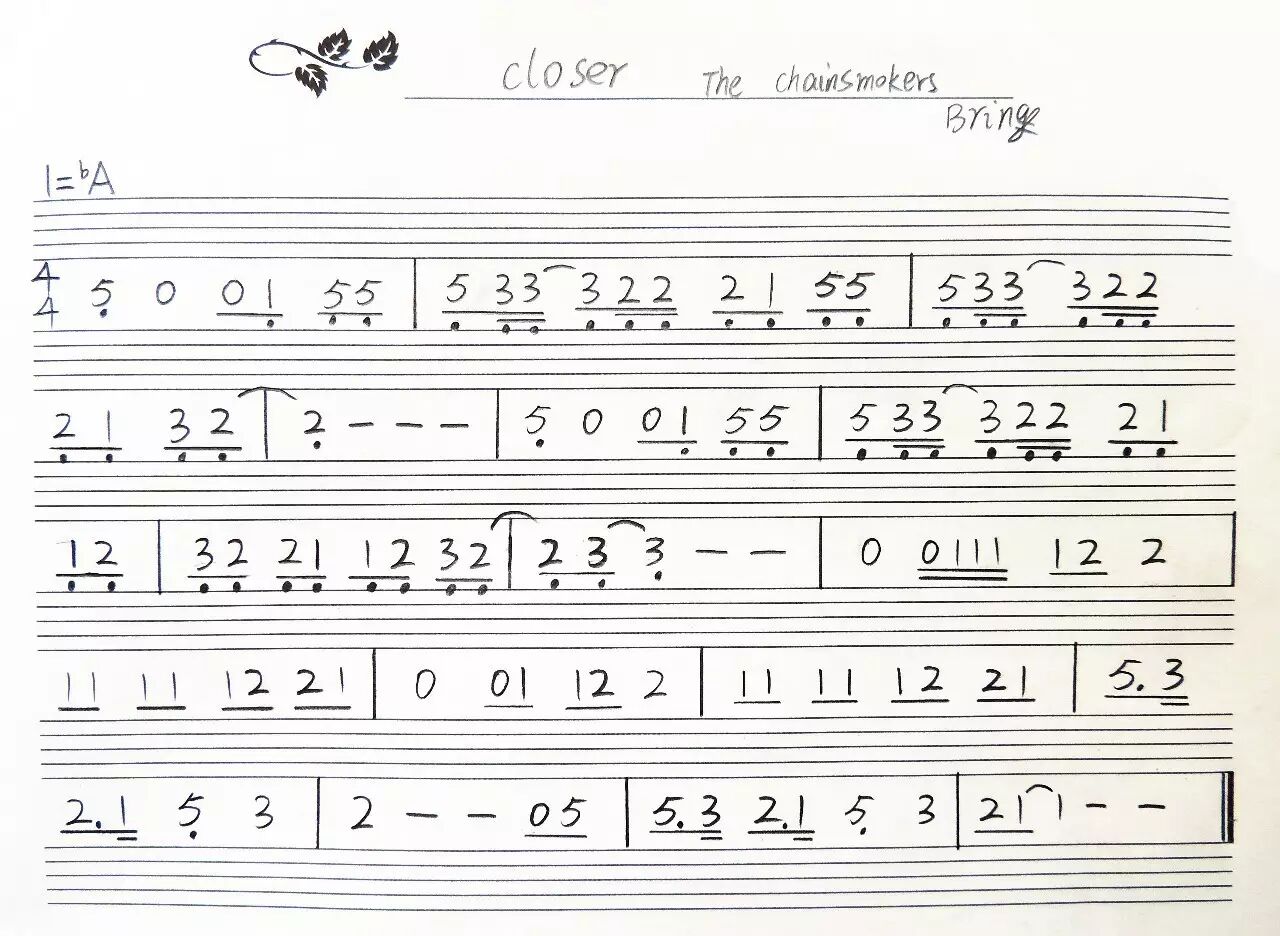 closer The chainsmokers
Bring
1=ᵇA
4/4 5̣ 0 0 1̣ 5̣ 5̣ | 5̣ 3̣ 3̣ 3̣ 2̣ 2̣ 2̣ 1̣ 5̣ 5̣ | 5̣ 3̣ 3̣ 3̣ 2̣ 2̣
2̣ 1̣ 3̣ 2̣ | 2̣ - - - | 5̣ 0 0 1̣ 5̣ 5̣ | 5̣ 3̣ 3̣ 3̣ 2̣ 2̣ 2̣ 1̣
1̣ 2̣ | 3̣ 2̣ 2̣ 1̣ 1̣ 2̣ 3̣ 2̣ | 2̣ 3̣ 3̣ - - | 0 0 1 1 1 1 2 2 |
1 1 1 1 1 2 2 1 | 0 0 1 1 2 2 | 1 1 1 1 1 2 2 1 | 5. 3
2. 1 5̣ 3 | 2 - - 0 5 | 5. 3 2. 1 5̣ 3 | 2 1 1 - - ‖